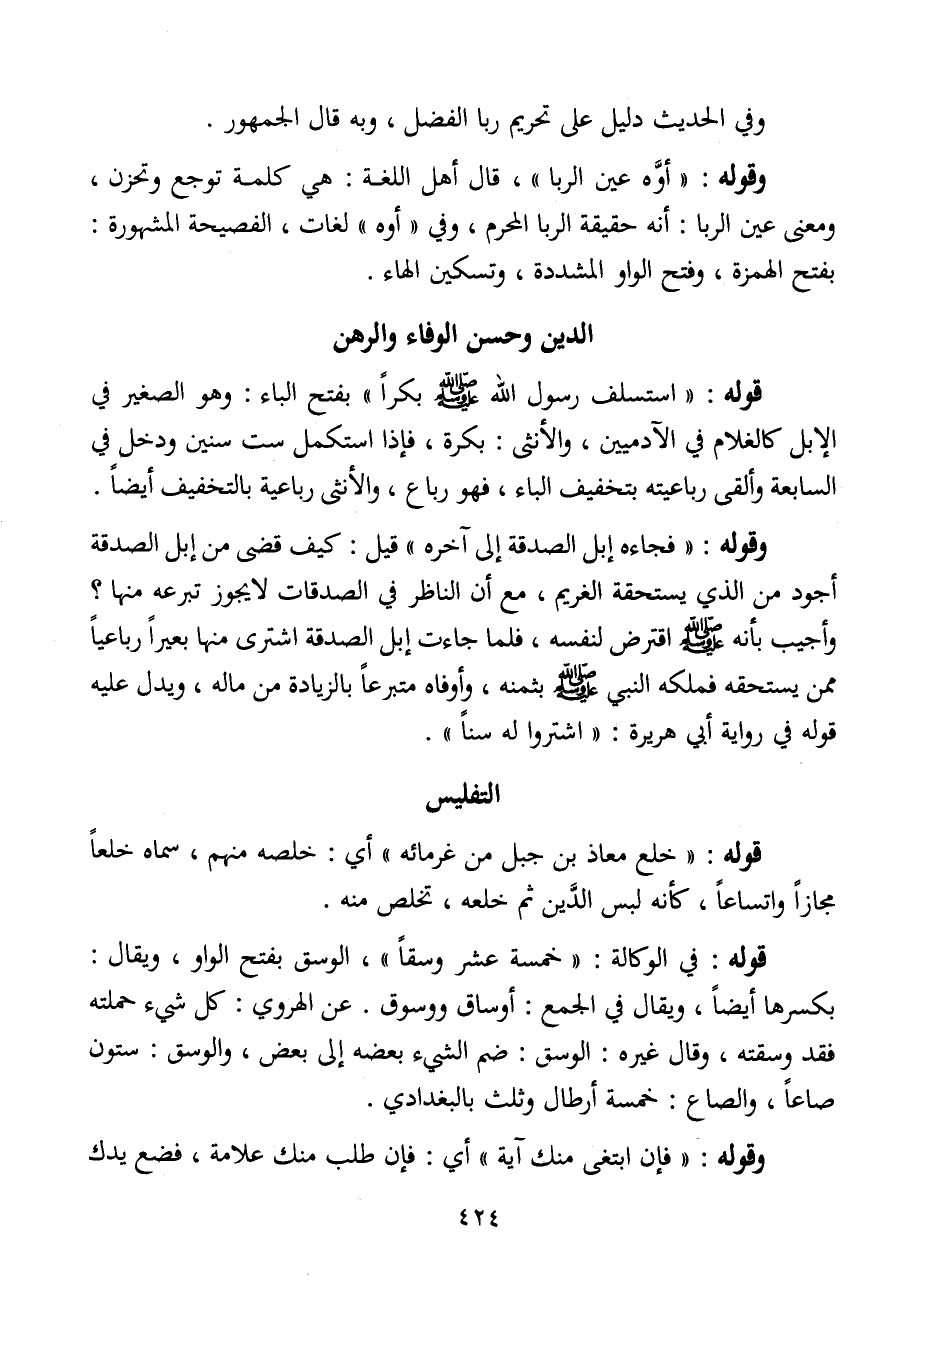 وفي الحديث دليل على تحريم ربا الفضل ، وبه قال الجمهور .
وقوله : « أوَّه عين الربا » ، قال أهل اللغة : هي كلمة توجع وتحزن ،
ومعنى عين الربا : أنه حقيقة الربا المحرم ، وفي « أوه » لغات ، الفصيحة المشهورة :
بفتح الهمزة ، وفتح الواو المشددة ، وتسكين الهاء .
الدين وحسن الوفاء والرهن
قوله : « استسلف رسول الله ﷺ بكراً » بفتح الباء : وهو الصغير في
الإبل كالغلام في الآدميين ، والأنثى : بكرة ، فإذا استكمل ست سنين ودخل في
السابعة وألقى رباعيته بتخفيف الباء ، فهو رباع ، والأنثى رباعية بالتخفيف أيضاً .
وقوله : « فجاءه إبل الصدقة إلى آخره » قيل : كيف قضى من إبل الصدقة
أجود من الذي يستحقة الغريم ، مع أن الناظر في الصدقات لايجوز تبرعه منها ؟
وأجيب بأنه ﷺ اقترض لنفسه ، فلما جاءت إبل الصدقة اشترى منها بعيراً رباعياً
ممن يستحقه فملكه النبي ﷺ بثمنه ، وأوفاه متبرعاً بالزيادة من ماله ، ويدل عليه
قوله في رواية أبي هريرة : « اشتروا له سناً » .
التفليس
قوله : « خلع معاذ بن جبل من غرمائه » أي : خلصه منهم ، سماه خلعاً
مجازاً واتساعاً ، كأنه لبس الدَّين ثم خلعه ، تخلص منه .
قوله : في الوكالة : « خمسة عشر وسقاً » ، الوسق بفتح الواو ، ويقال :
بكسرها أيضاً ، ويقال في الجمع : أوساق ووسوق . عن الهروي : كل شيء حملته
فقد وسقته ، وقال غيره : الوسق : ضم الشيء بعضه إلى بعض ، والوسق : ستون
صاعاً ، والصاع : خمسة أرطال وثلث بالبغدادي .
وقوله : « فإن ابتغى منك آية » أي : فإن طلب منك علامة ، فضع يدك
٤٢٤